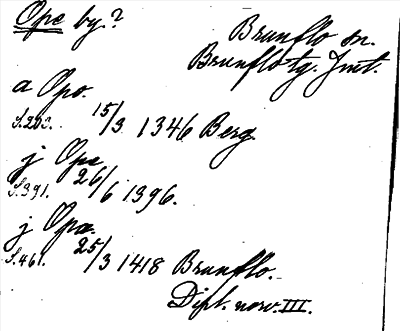 Ope by.?
Brunflo sn.
Brunflo tg. Jmt.
a Opo.
S.203. 15/3 1346 Berg
j Ope
S.391. 26/6 1396.
j Opæ.
S.461. 25/3 1418 Brunflo.
Dipl. norv. III.